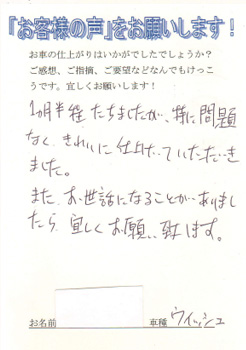 「お客様の声」をお願いします！
お車の仕上がりはいかがでしたでしょうか？
ご感想、ご指摘、ご要望などなんでもけっこ
うです。宜しくお願いします！
1ヵ月半経ちましたが、特に問題
なく、きれいに仕上げていただき
ました。
また、お世話になることがありまし
たら、宜しくお願い致します。
お名前 車種 ウイッシュ